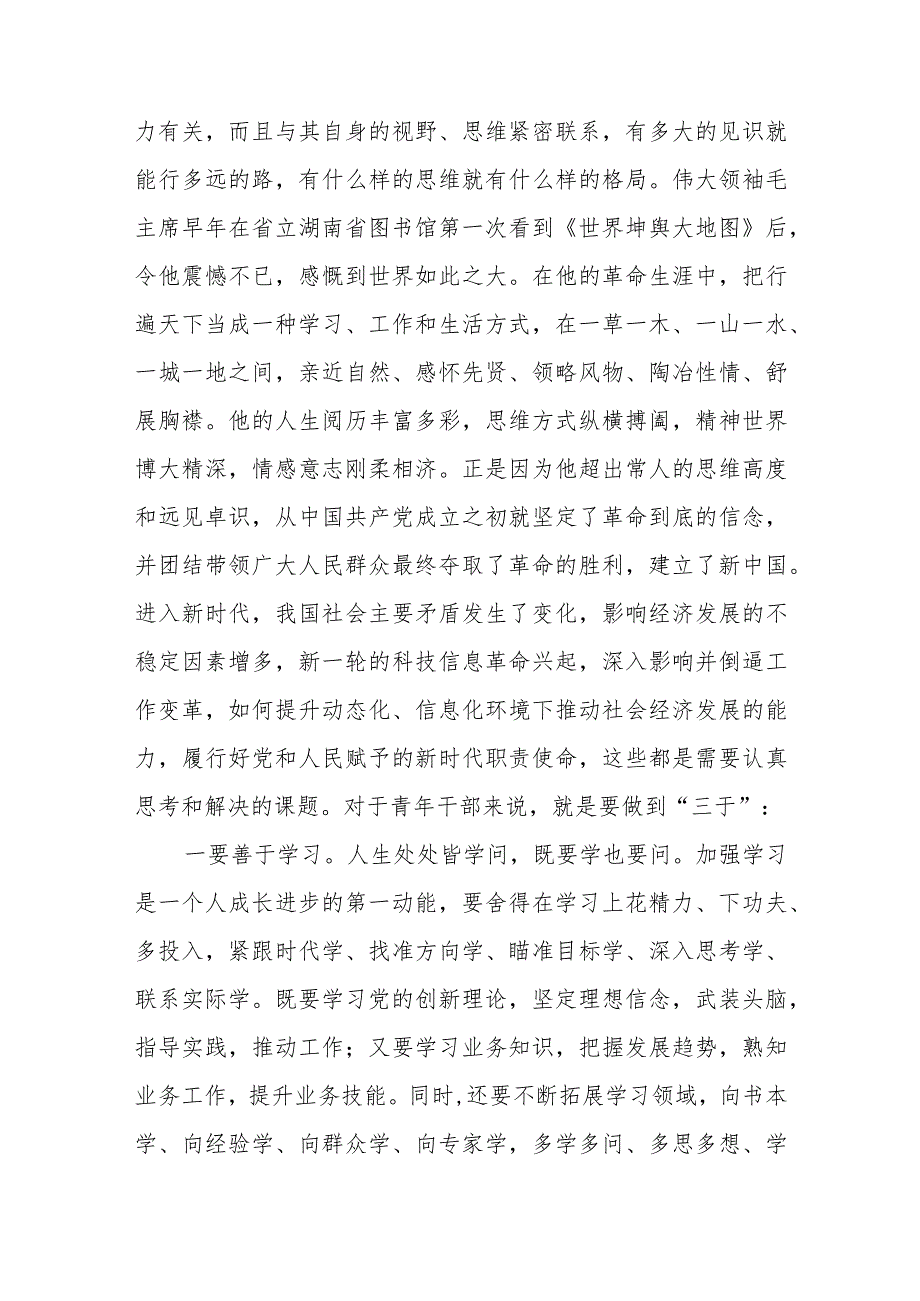 力有关，而且与其自身的视野、思维紧密联系，有多大的见识就
能行多远的路，有什么样的思维就有什么样的格局。伟大领袖毛
主席早年在省立湖南省图书馆第一次看到《世界坤舆大地图》后，
令他震憾不已，感慨到世界如此之大。在他的革命生涯中，把行
遍天下当成一种学习、工作和生活方式，在一草一木、一山一水、
一城一地之间，亲近自然、感怀先贤、领略风物、陶冶性情、舒
展胸襟。他的人生阅历丰富多彩，思维方式纵横搏阖，精神世界
博大精深，情感意志刚柔相济。正是因为他超出常人的思维高度
和远见卓识，从中国共产党成立之初就坚定了革命到底的信念，
并团结带领广大人民群众最终夺取了革命的胜利，建立了新中国。
进入新时代，我国社会主要矛盾发生了变化，影响经济发展的不
稳定因素增多，新一轮的科技信息革命兴起，深入影响并倒逼工
作变革，如何提升动态化、信息化环境下推动社会经济发展的能
力，履行好党和人民赋予的新时代职责使命，这些都是需要认真
思考和解决的课题。对于青年干部来说，就是要做到“三于”：
一要善于学习。人生处处皆学问，既要学也要问。加强学习
是一个人成长进步的第一动能，要舍得在学习上花精力、下功夫、
多投入，紧跟时代学、找准方向学、瞄准目标学、深入思考学、
联系实际学。既要学习党的创新理论，坚定理想信念，武装头脑，
指导实践，推动工作；又要学习业务知识，把握发展趋势，熟知
业务工作，提升业务技能。同时,还要不断拓展学习领域，向书本
学、向经验学、向群众学、向专家学，多学多问、多思多想、学